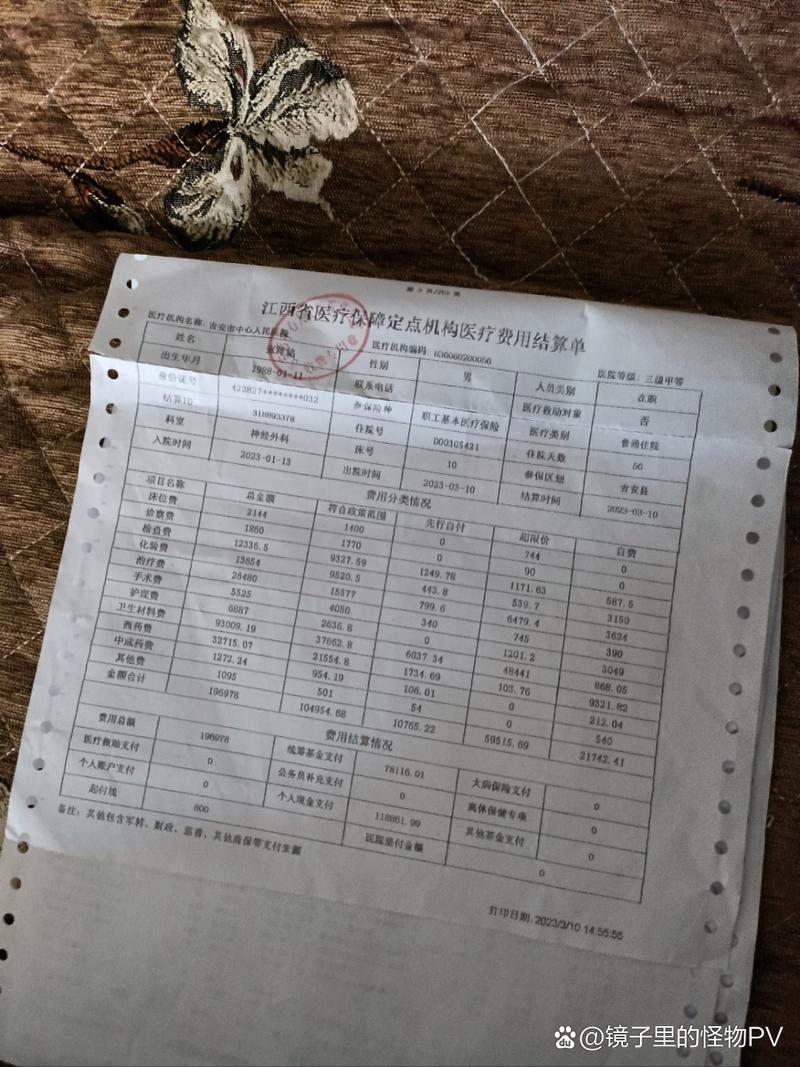 第 3 页/共3 页
江西省医疗保障定点机构医疗费用结算单
医疗机构名称: 吉安市中心人民医院 医疗机构编码: H36080200056 医院等级: 三级甲等
姓名 性别 男 人员类别 在职
出生年月 1988-01-11 联系电话 医疗救助对象 否
身份证号 422827********032 参保险种 职工基本医疗保险 医疗类别 普通住院
结算ID 318893378 住院号 D00305421 住院天数 56
科室 神经外科 床号 10 参保区划 吉安县
入院时间 2023-01-13 出院时间 2023-03-10 结算时间 2023-03-10
费用分类情况
项目名称 总金额 符合政策范围 先行自付 超限价 自费
床位费 2144 1400 0 744 0
诊察费 1860 1770 0 90 0
检查费 12336.5 9327.59 1249.78 1171.63 587.5
化验费 13654 9520.5 443.8 539.7 3150
治疗费 26480 15577 799.6 6479.4 3624
手术费 5525 4050 340 745 390
护理费 6887 2636.8 0 1201.2 3049
卫生材料费 93009.19 37662.8 6037.34 48441 868.05
西药费 32715.07 21554.8 1734.69 103.76 9321.82
中成药费 1272.24 954.19 106.01 0 212.04
其他费 1095 501 54 0 540
金额合计 196978 104954.68 10765.22 59515.69 21742.41
费用结算情况
费用总额 196978 统筹基金支付 78116.01 大病保险支付 0
医疗救助支付 0 公务员补充支付 0 离休保健专项 0
个人账户支付 0 个人现金支付 118861.99 其他基金支付 0
起付线 800 医院垫付金额 0
备注: 其他包含军转、财政、慈善、其他商保等支付来源
打印日期: 2023/3/10 14:55:55
@镜子里的怪物PV